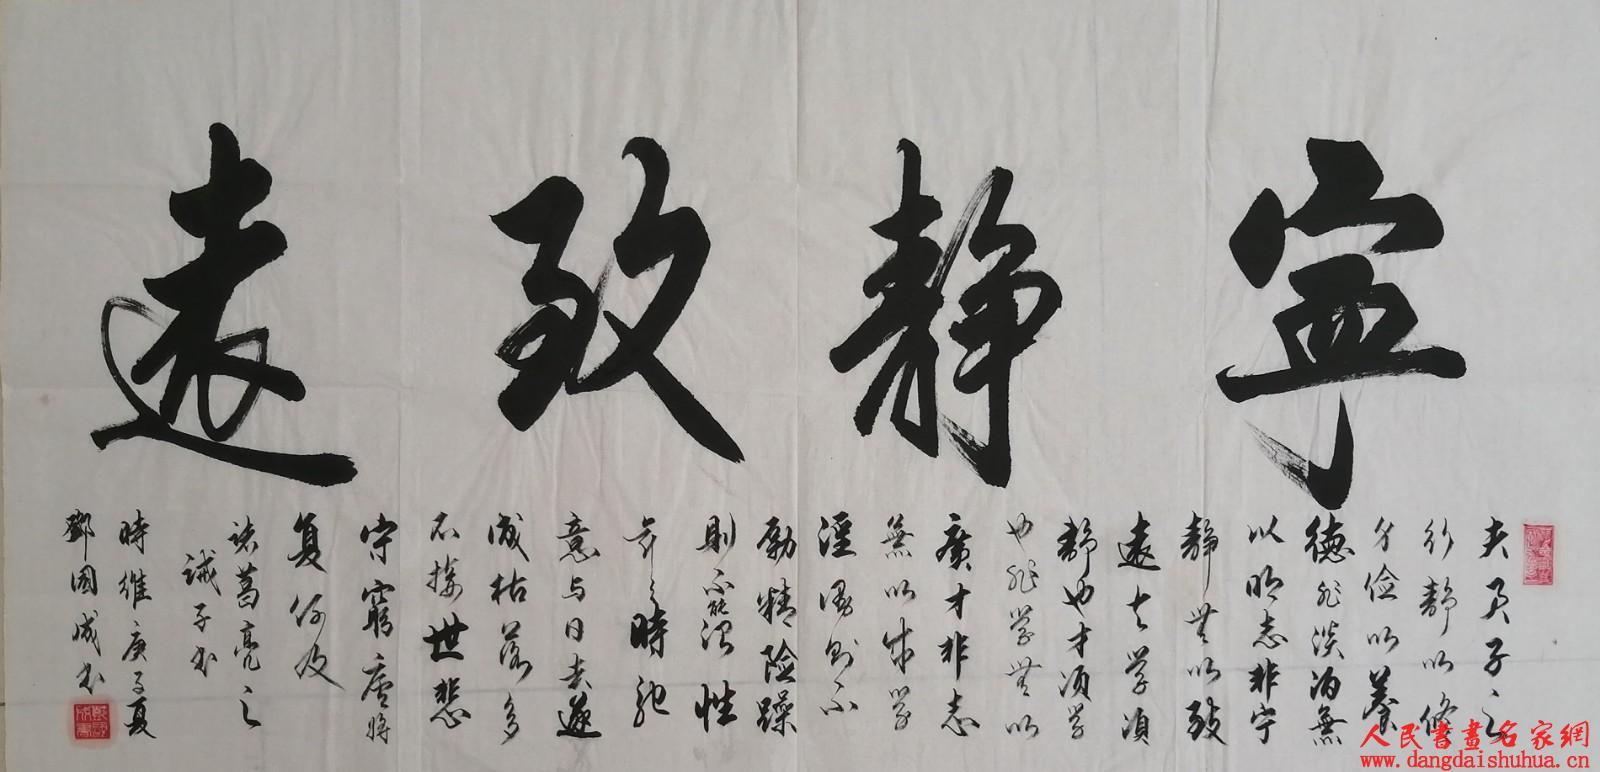 寧靜致遠
夫君子之
行静以修
身俭以养
德非淡泊無
以明志非宁
静無以致
遠夫学須
静也才須学
也非学無以
廣才非志
無以成学
淫慢则不
励精险躁
則不能治性
年与時馳
意与日去遂
成枯落多
不接世悲
守窮廬將
复何及
诸葛亮之
诫子书
時維庚子夏
鄧国成书
人民書畫名家網
www.dangdaishuhua.cn